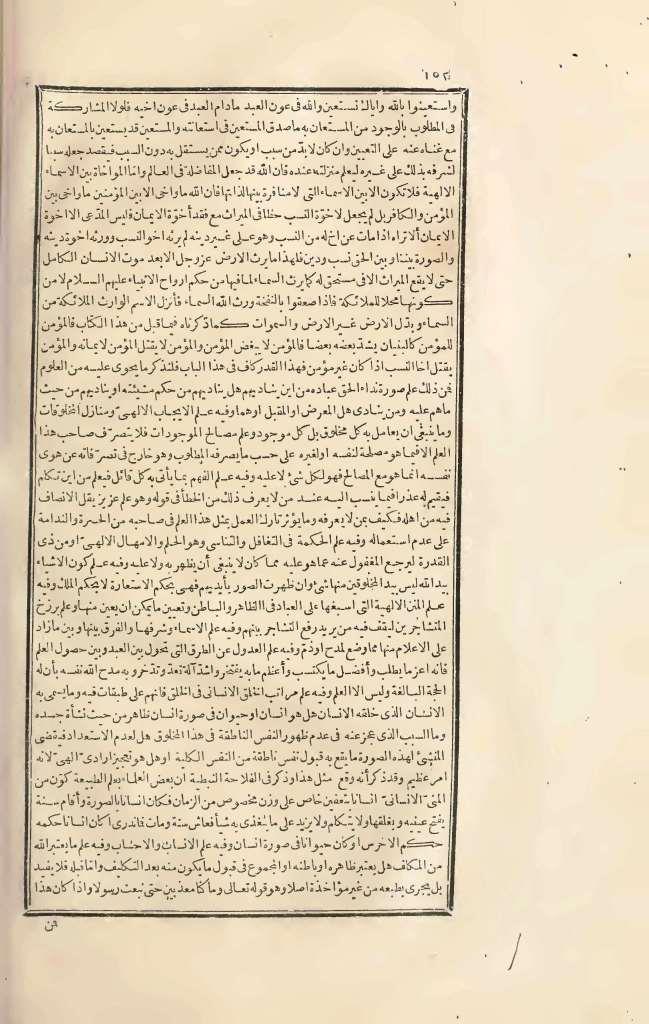 ١٥٢
واستعينوا بالله واياك نستعين والله فى عون العبد مادام العبد فى عون اخيه فلولا المشاركة
فى المطلوب بالوجود من المستعان به ما صدق المستعين فى استعانته والمستعين قد يستعين بالمستعان به
مع غناه عنه على التعيين وان كان لابد من سبب او يكون ممن يستقل به دون السبب فيقصد جعله سببا
لشرفه بذلك على غيره ليعلم منزلته عنده فان الله قد جعل المفاضلة فى العالم واما المؤاخاة بين الاسماء
الالهية فلا تكون الا بين الاسماء التى لا منافرة بينها لذاتها فان الله ما واخى الا بين المؤمنين ما واخى بين
المؤمن والكافر بل لم يجعل لاخوة النسب حظا فى الميراث مع فقد أخوة الايمان فليس المدعى الا اخوة
الايمان ألا تراه اذا مات عن اخ له من النسب وهو على غير دينه لم يرثه اخو النسب وورثه اخوة دينه
والصورة بيننا وبين الحق نسب ودين فلهذا ما يرث الارض عز وجل الا بعد موت الانسان الكامل
حتى لا يقع الميراث الا فى مستحق له كما يرث السماء لما فيها من حكم ارواح الانبياء عليهم السلام لا من
كونها محلا للملائكة فاذا صعقوا بالنفخة ورث الله السماء فأنزل الاسم الوارث الملائكة من
السماء وبدل الارض غير الارض والسموات كما ذكرناه فيما قبل من هذا الكتاب فالمؤمن
للمؤمن كالبنيان يشد بعضه بعضا فالمؤمن لا يبغض المؤمن والمؤمن لا يقتل المؤمن لايمانه والمؤمن
يقتل اخا النسب اذا كان غير مؤمن فهذا القدر كاف فى هذا الباب فلنذكر ما يحوى عليه من العلوم
فمن ذلك علم صورة نداء الحق عباده من اين يناديهم هل يناديهم من حكم مشيئته او يناديهم من حيث
ما هم عليه ومن ينادى هل المعرض او المقبل او هما وفيه علم الايجاب الالهى ومنازل المخلوقات
وما ينبغى ان يعامل به كل مخلوق بل كل موجود وعلم مصالح الموجودات فلا يتصرف صاحب هذا
العلم الا فيما هو مصلحة لنفسه او لغيره على حسب ما يصرفه المطلوب وهو خارج فى تصرفاته عن هوى
نفسه انما هو مع المصالح فهو لكل شئ لا عليه وفيه علم الفهم بما يأتى به كل قائل فيعلم من اين تكلم
فيقيم له عذرا فيما ينسب اليه عند من لا يعرف ذلك من الخطأ فى قوله وهو علم عزيز يقل الانصاف
فيه من اهله فكيف بمن لا يعرفه وما يؤثر تارك العمل بمثل هذا العلم فى صاحبه من الحسرة والندامة
على عدم استعماله وفيه علم الحكمة فى التغافل والتناسى وهو الحلم والامهال الالهى او من ذى
القدرة ليرجع المغفول عنه عما هو عليه مما كان لا ينبغى أن يظهر به ولا عليه وفيه علم كون الاشياء
بيد الله ليس بيد المخلوقين منها شئ وان ظهرت الصور بأيديهم فهى بحكم الاستعارة لا بحكم الملك وفيه
علم المنن الالهية التى اسبغها على العباد فى الظاهر والباطن وتعيين ما يمكن ان يعين منها وعلم برزخ
المتشاجرين ليقف فيه من يريد رفع التشاجر بينهم وفيه علم الاسماء وشرفها والفرق بينها وبين ما زاد
على الاعلام منها مما وضع لمدح او ذم وفيه علم العدول عن الطرق التى تحول بين العبد وبين حصول العلم
فانه اعز ما يطلب وأفضل ما يكتسب وأعظم ما به يفتخر واشد آلة تعد وتدخر وبه مدح الله نفسه بأن له
الحجة البالغة وليس الا العلم وفيه علم مراتب الخلق الانسانى فى الخلق فانهم على طبقات فيه وما يسمى به
الانسان الذى خلقه الانسان هل هو انسان او حيوان فى صورة انسان ظاهر من حيث نشأة جسده
وما السبب الذى عجز عنه فى عدم ظهور النفس الناطقة فى هذا المخلوق هل لعدم الاستعداد فيقضى
المنشئ لهذه الصورة ما يقع به قبول نفس ناطقة من النفس الكلية او هل هو تعجيز ارادى الهى لانه
امر عظيم وقد ذكر أنه وقع مثل هذا وذكر فى الفلاحة النبطية ان بعض العلماء بعلم الطبيعة كون من
المنى الانسانى انسانا بتعفين خاص على وزن مخصوص من الزمان فكان انسانا بالصورة وأقام سنة
يفتح عينيه ويغلقها ولا يتكلم ولا يزيد على ما يتغذى به شيأ فعاش سنة ومات فما ندرى اكان انسانا حكمه
حكم الاخرس او كان حيوانا فى صورة انسان وفيه علم الانساب والاحساب وفيه علم ما يعتبر الله
من المكلف هل يعتبر ظاهره او باطنه او المجموع فى قبول ما يكون منه بعد التكليف واما قبله فلا يفيد
بل يجرى بطبعه من غير مؤاخذة اصلا وهو قوله تعالى وما كنا معذبين حتى نبعث رسولا واذا كان هذا